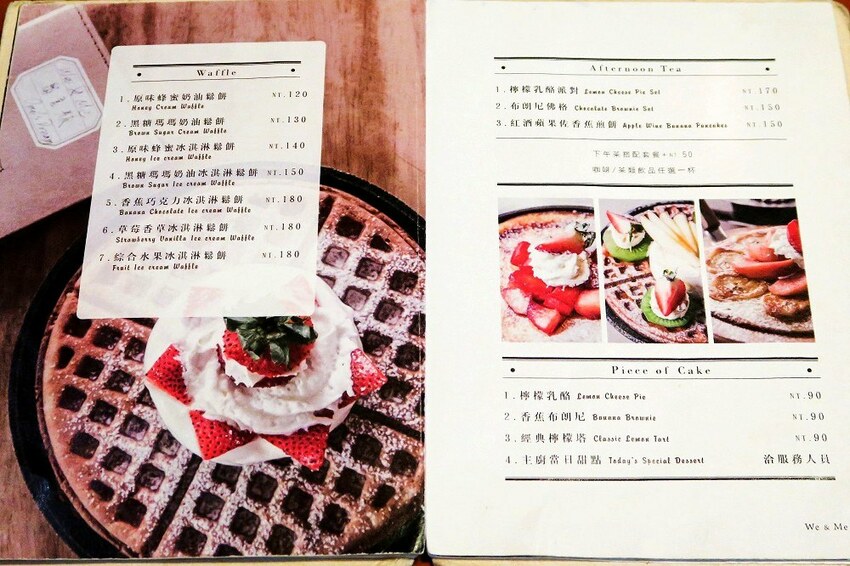 Waffle
1. 原味蜂蜜奶油鬆餅 NT.120
Honey Cream Waffle
2. 黑糖瑪瑪奶油鬆餅 NT.130
Brown Sugar Cream Waffle
3. 原味蜂蜜冰淇淋鬆餅 NT.140
Honey Ice cream Waffle
4. 黑糖瑪瑪奶油冰淇淋鬆餅 NT.150
Brown Sugar Ice cream Waffle
5. 香蕉巧克力冰淇淋鬆餅 NT.180
Banana Chocolate Ice cream Waffle
6. 草莓香草冰淇淋鬆餅 NT.180
Strawberry Vanilla Ice cream Waffle
7. 綜合水果冰淇淋鬆餅 NT.180
Fruit Ice cream Waffle
Afternoon Tea
1. 檸檬乳酪派對 Lemon Cheese Pie Set NT.170
2. 布朗尼佛格 Chocolate Brownie Set NT.150
3. 紅酒蘋果佐香蕉煎餅 Apple Wine Banana Pancakes NT.150
下午茶搭配套餐+NT.50
咖啡/茶類飲品任選一杯
Piece of Cake
1. 檸檬乳酪 Lemon Cheese Pie NT.90
2. 香蕉布朗尼 Banana Brownie NT.90
3. 經典檸檬塔 Classic Lemon Tart NT.90
4. 主廚當日甜點 Today's Special Dessert 洽服務人員
We & Me